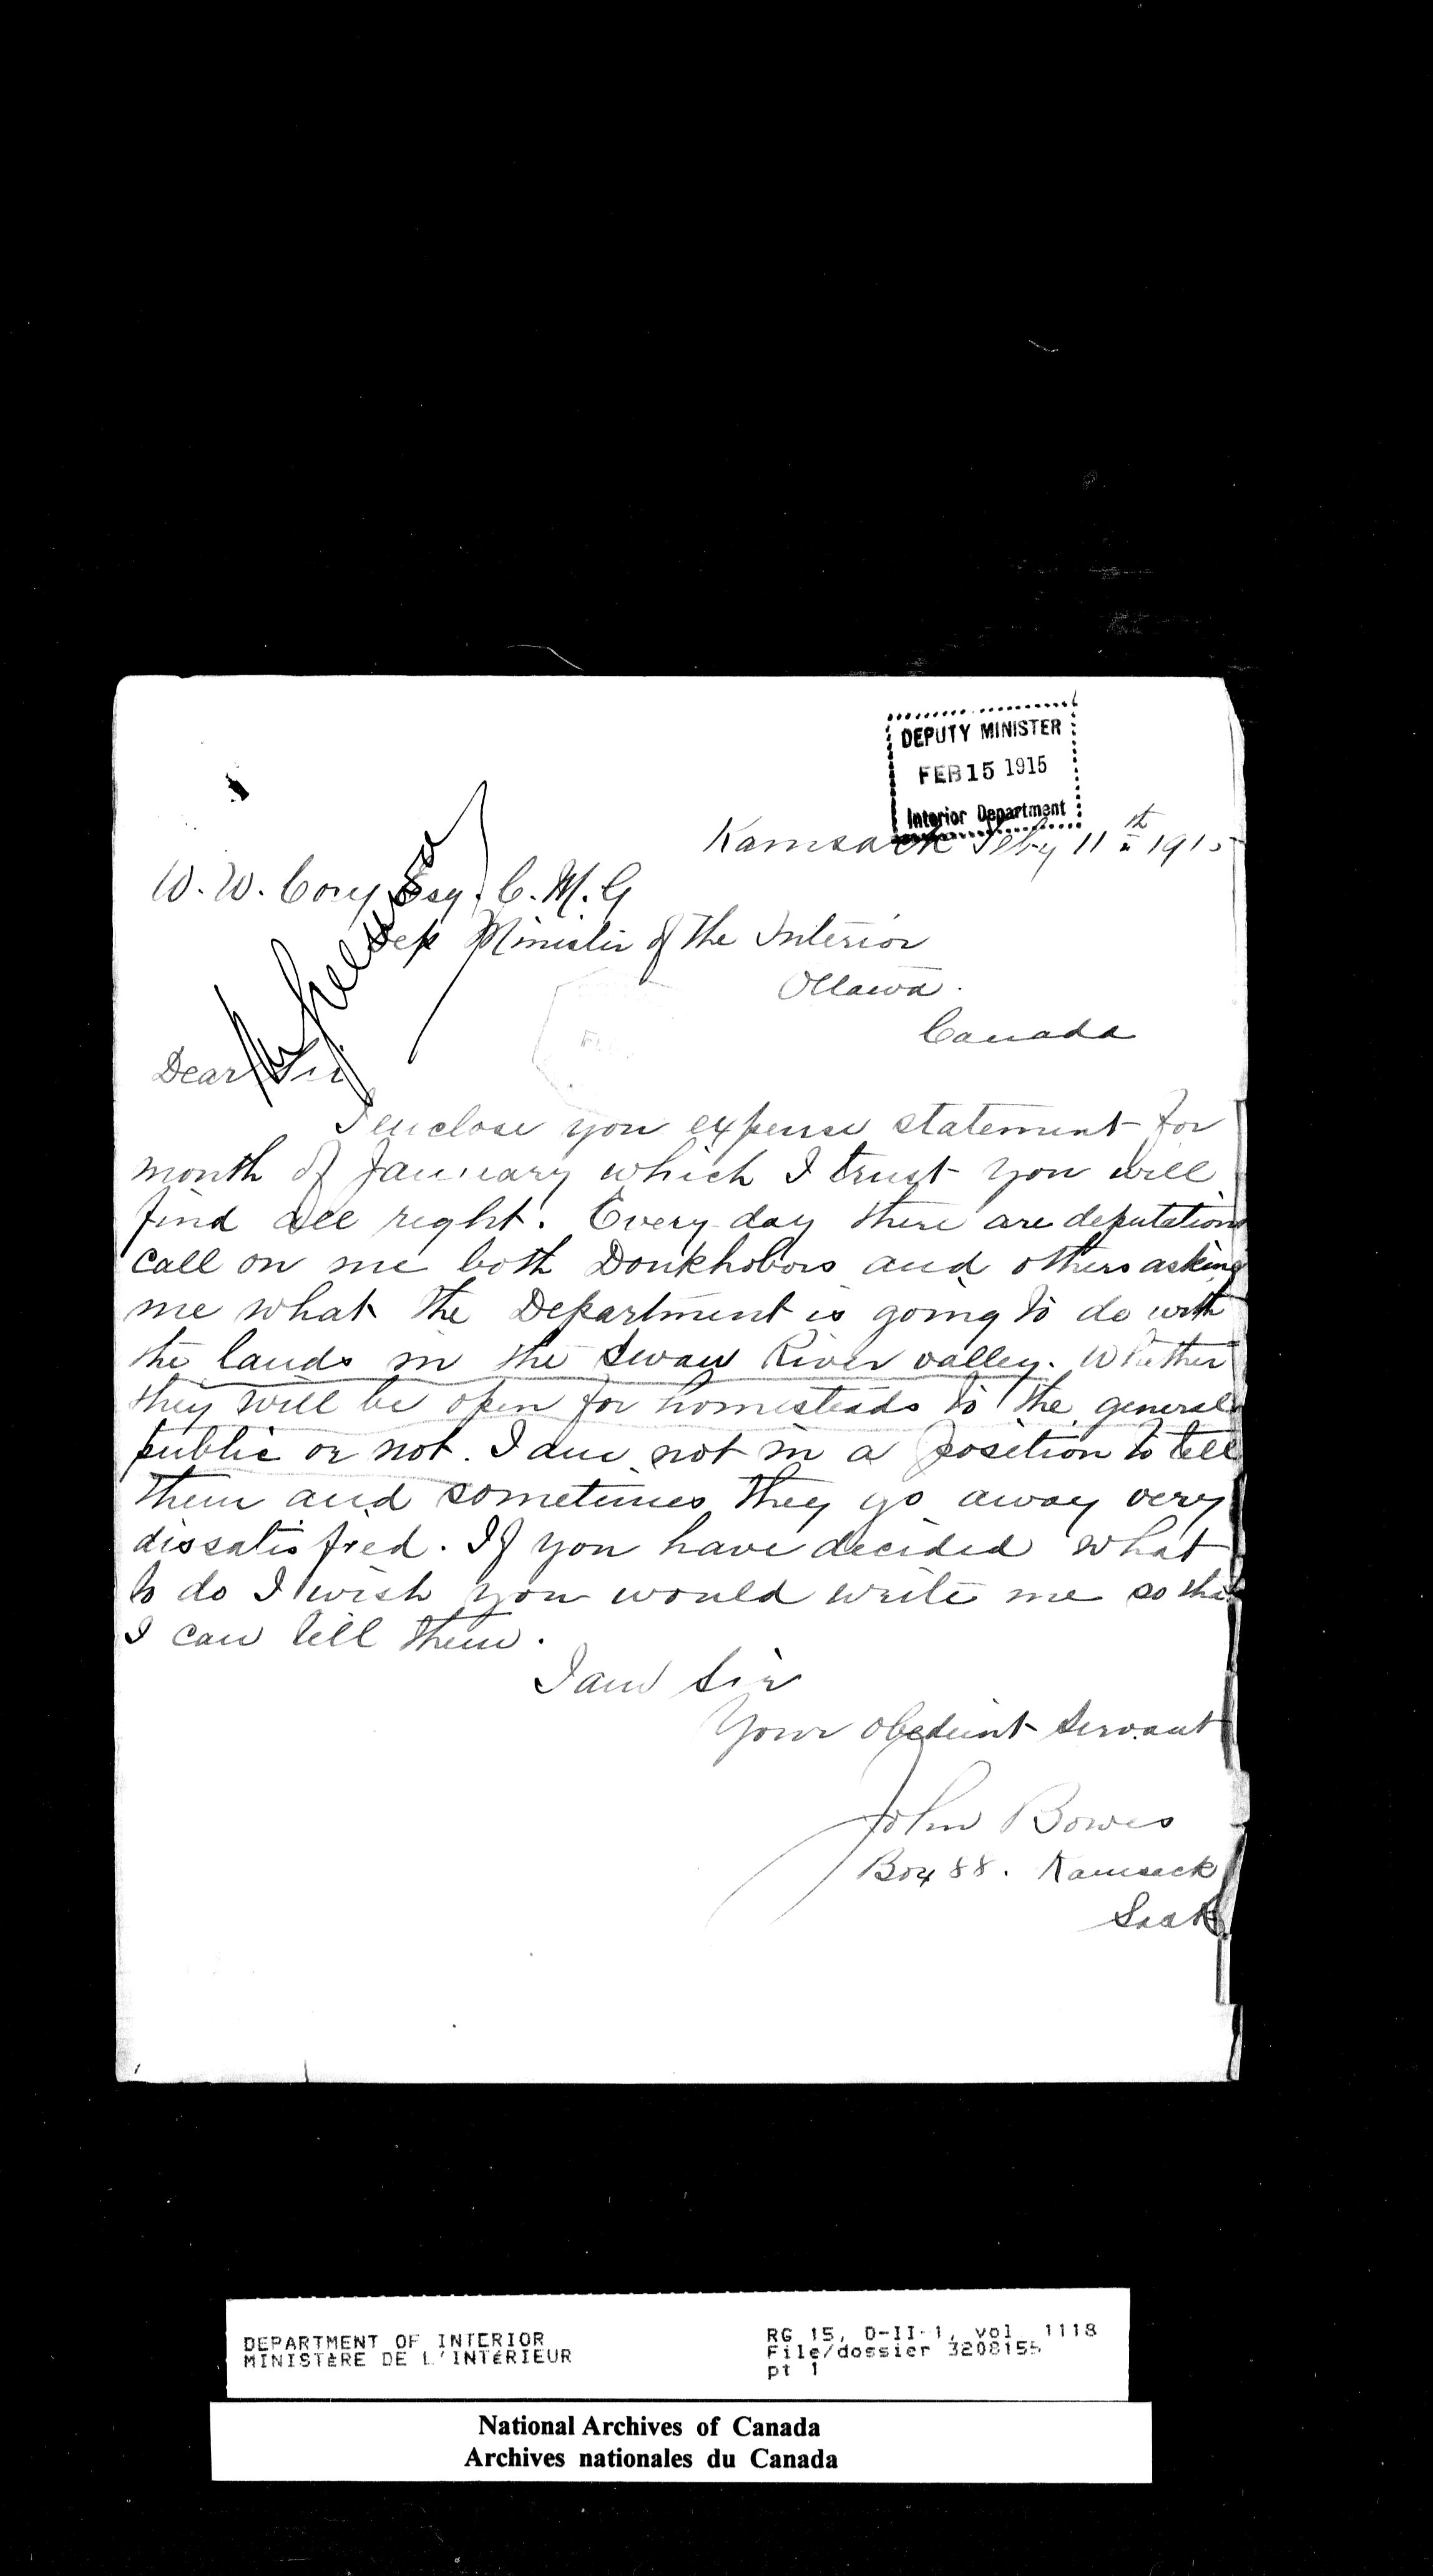 DEPUTY MINISTER
FEB 15 1915
Interior Department
Kamsack Feby 11th 1915
W. W. Cory Esq. C. M. G
Dep Minister of the Interior
Ottawa.
Canada
Dear Sir
I enclose you expense statement for
month of January which I trust you will
find all right. Every day there are deputations
call on me both Doukhobors and others asking
me what the Department is going to do with
the lands in the Swan River valley. Whether
they will be open for homesteads to the general
public or not. I am not in a position to tell
them and sometimes they go away very
dissatisfied. If you have decided what
to do I wish you would write me so that
I can tell them.
I am Sir
Your obedient Servant
John Bowes
Box 88. Kamsack
Sask
DEPARTMENT OF INTERIOR
MINISTÈRE DE L'INTÉRIEUR
RG 15, D-II-1, vol 1118
File/dossier 3208155
pt 1
National Archives of Canada
Archives nationales du Canada